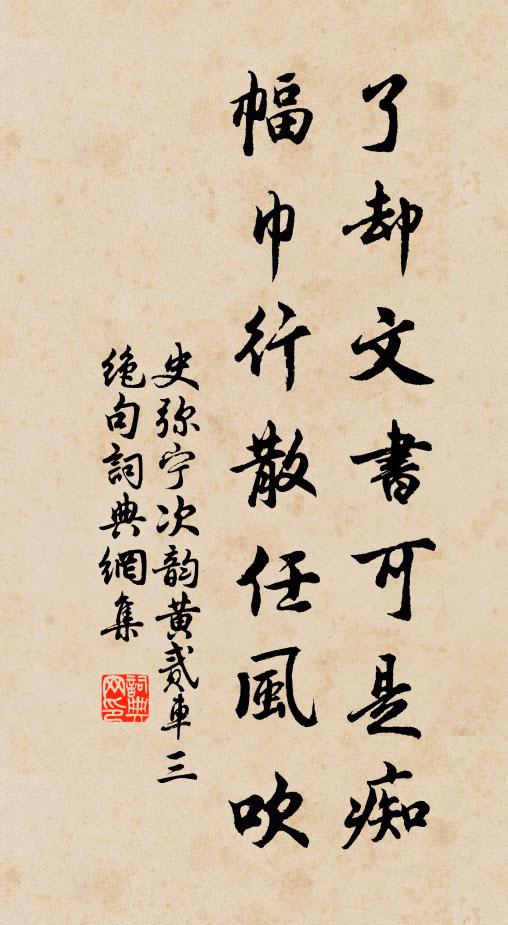 了却文書可是痴
幅巾行散任風吹
史弥宁次韵黄貳車三
绝句詞典網集
詞典
网印